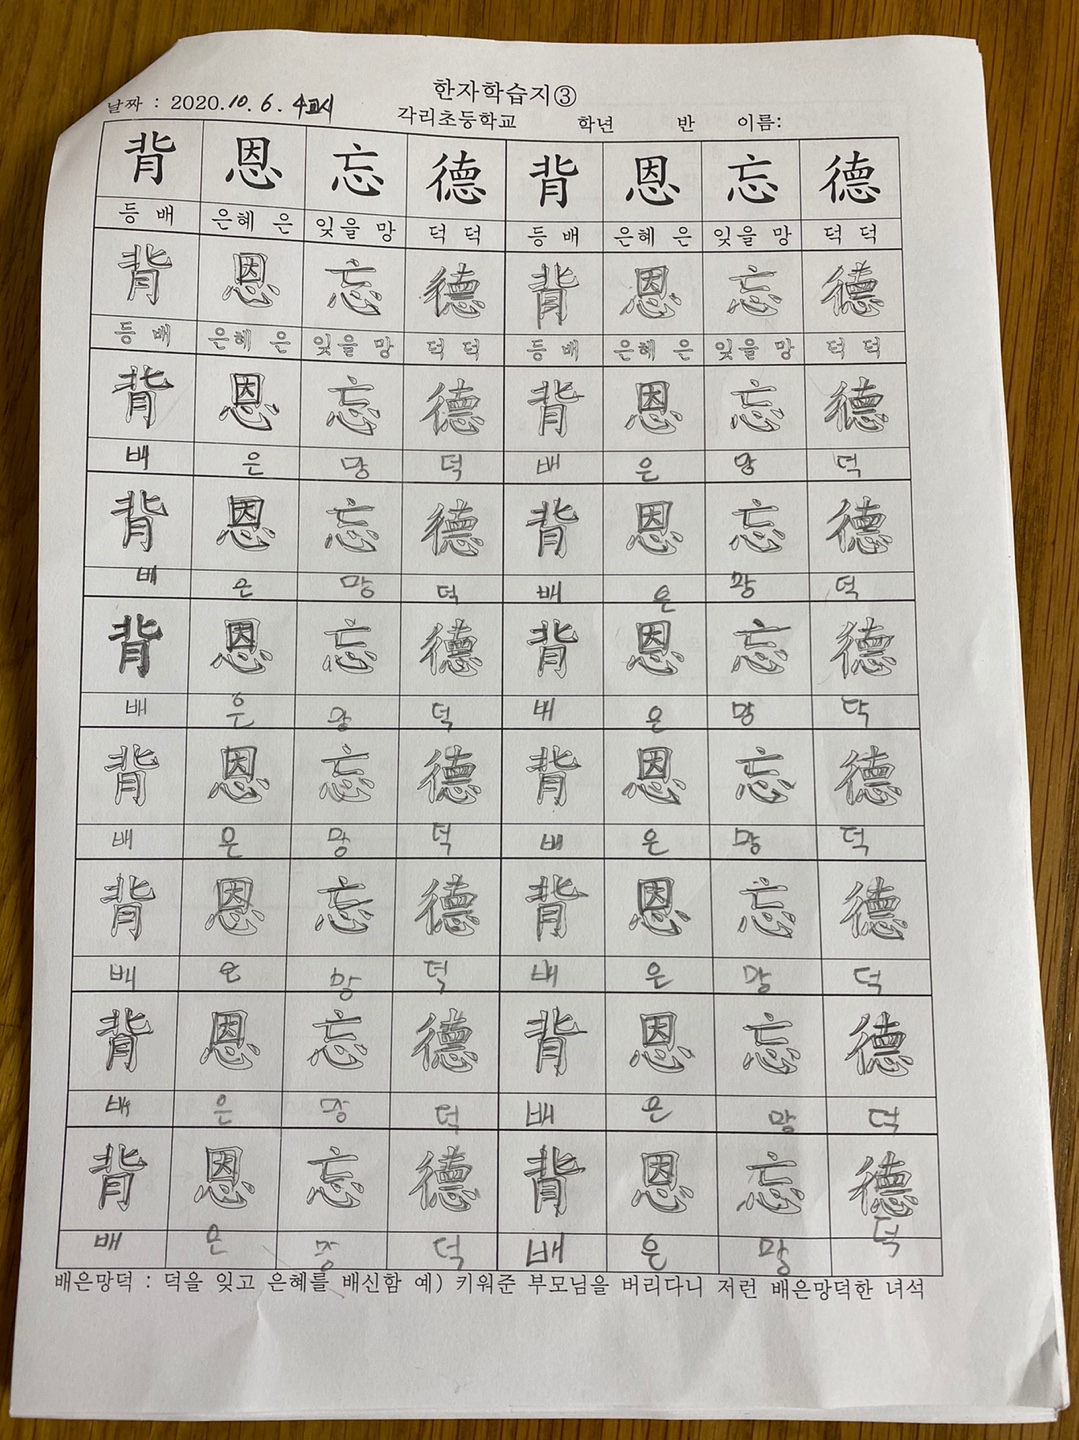 한자학습지③
날짜 : 2020.10. 6. 4교시
각리초등학교 학년 반 이름:
背 恩 忘 德 背 恩 忘 德
등 배 은혜 은 잊을 망 덕 덕 등 배 은혜 은 잊을 망 덕 덕
背 恩 忘 德 背 恩 忘 德
등 배 은혜 은 잊을 망 덕 덕 등 배 은혜 은 잊을 망 덕 덕
背 恩 忘 德 背 恩 忘 德
배 은 망 덕 배 은 망 덕
背 恩 忘 德 背 恩 忘 德
배 은 망 덕 배 은 망 덕
背 恩 忘 德 背 恩 忘 德
배 은 망 덕 배 은 망 덕
背 恩 忘 德 背 恩 忘 德
배 은 망 덕 배 은 망 덕
背 恩 忘 德 背 恩 忘 德
배 은 망 덕 배 은 망 덕
背 恩 忘 德 背 恩 忘 德
배 은 망 덕 배 은 망 덕
背 恩 忘 德 背 恩 忘 德
배 은 망 덕 배 은 망 덕
배은망덕 : 덕을 잊고 은혜를 배신함 예) 키워준 부모님을 버리다니 저런 배은망덕한 녀석